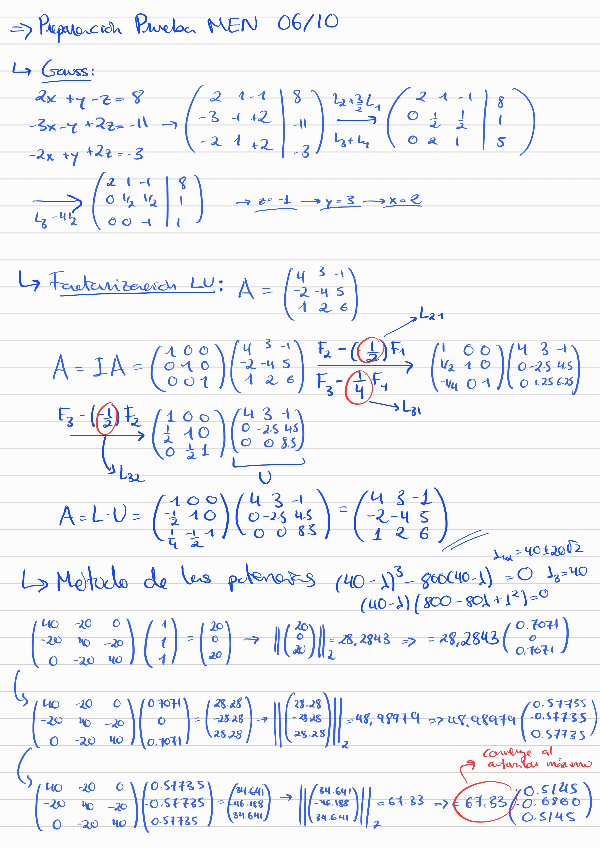 ⇒ Preparación Prueba MEN 06/10
↳ Gauss:
2x + y - z = 8
-3x - y + 2z = -11 → ( 2 1 -1 | 8 ; -3 -1 +2 | -11 ; -2 1 +2 | -3 ) L₂+3/2 L₁ L₃+L₁ → ( 2 1 -1 | 8 ; 0 1/2 1/2 | 1 ; 0 2 1 | 5 )
-2x + y + 2z = -3
L₃ - 4L₂ → ( 2 1 -1 | 8 ; 0 1/2 1/2 | 1 ; 0 0 -1 | 1 ) → z = -1 → y = 3 → x = 2
↳ Factorización LU: A = ( 4 3 -1 ; -2 -4 5 ; 1 2 6 )
L21
A = IA = ( 1 0 0 ; 0 1 0 ; 0 0 1 ) ( 4 3 -1 ; -2 -4 5 ; 1 2 6 ) F₂ - (-1/2) F₁ F₃ - 1/4 F₁ → ( 1 0 0 ; 1/2 1 0 ; -1/4 0 1 ) ( 4 3 -1 ; 0 -2.5 4.5 ; 0 1.25 6.25 )
L31
F₃ - (-1/2) F₂ → ( 1 0 0 ; 1/2 1 0 ; 0 1/2 1 ) ( 4 3 -1 ; 0 -2.5 4.5 ; 0 0 8.5 )
L32 U
A = L·U = ( 1 0 0 ; -1/2 1 0 ; 1/4 -1/2 1 ) ( 4 3 -1 ; 0 -2.5 4.5 ; 0 0 8.5 ) = ( 4 3 -1 ; -2 -4 5 ; 1 2 6 )
= 40±20√2
↳ Método de las potencias (40-λ)³ - 800(40-λ) = 0 λ₃ = 40
(40-λ)(800-80λ+λ²) = 0
( 40 -20 0 ; -20 40 -20 ; 0 -20 40 ) ( 1 ; 1 ; 1 ) = ( 20 ; 0 ; 20 ) → ||( 20 ; 0 ; 20 )||₂ = 28,2843 => = 28,2843 ( 0.7071 ; 0 ; 0.7071 )
( 40 -20 0 ; -20 40 -20 ; 0 -20 40 ) ( 0.7071 ; 0 ; 0.7071 ) = ( 28.28 ; -28.28 ; 28.28 ) → ||( 28.28 ; -28.28 ; 28.28 )||₂ = 48,98979 => 48,98979 ( 0.57735 ; -0.57735 ; 0.57735 )
converge al
autovalor máximo
( 40 -20 0 ; -20 40 -20 ; 0 -20 40 ) ( 0.57735 ; -0.57735 ; 0.57735 ) = ( 34.641 ; -46.188 ; 34.641 ) → ||( 34.641 ; -46.188 ; 34.641 )||₂ = 67.33 => = 67.33 ( 0.5145 ; -0.6860 ; 0.5145 )